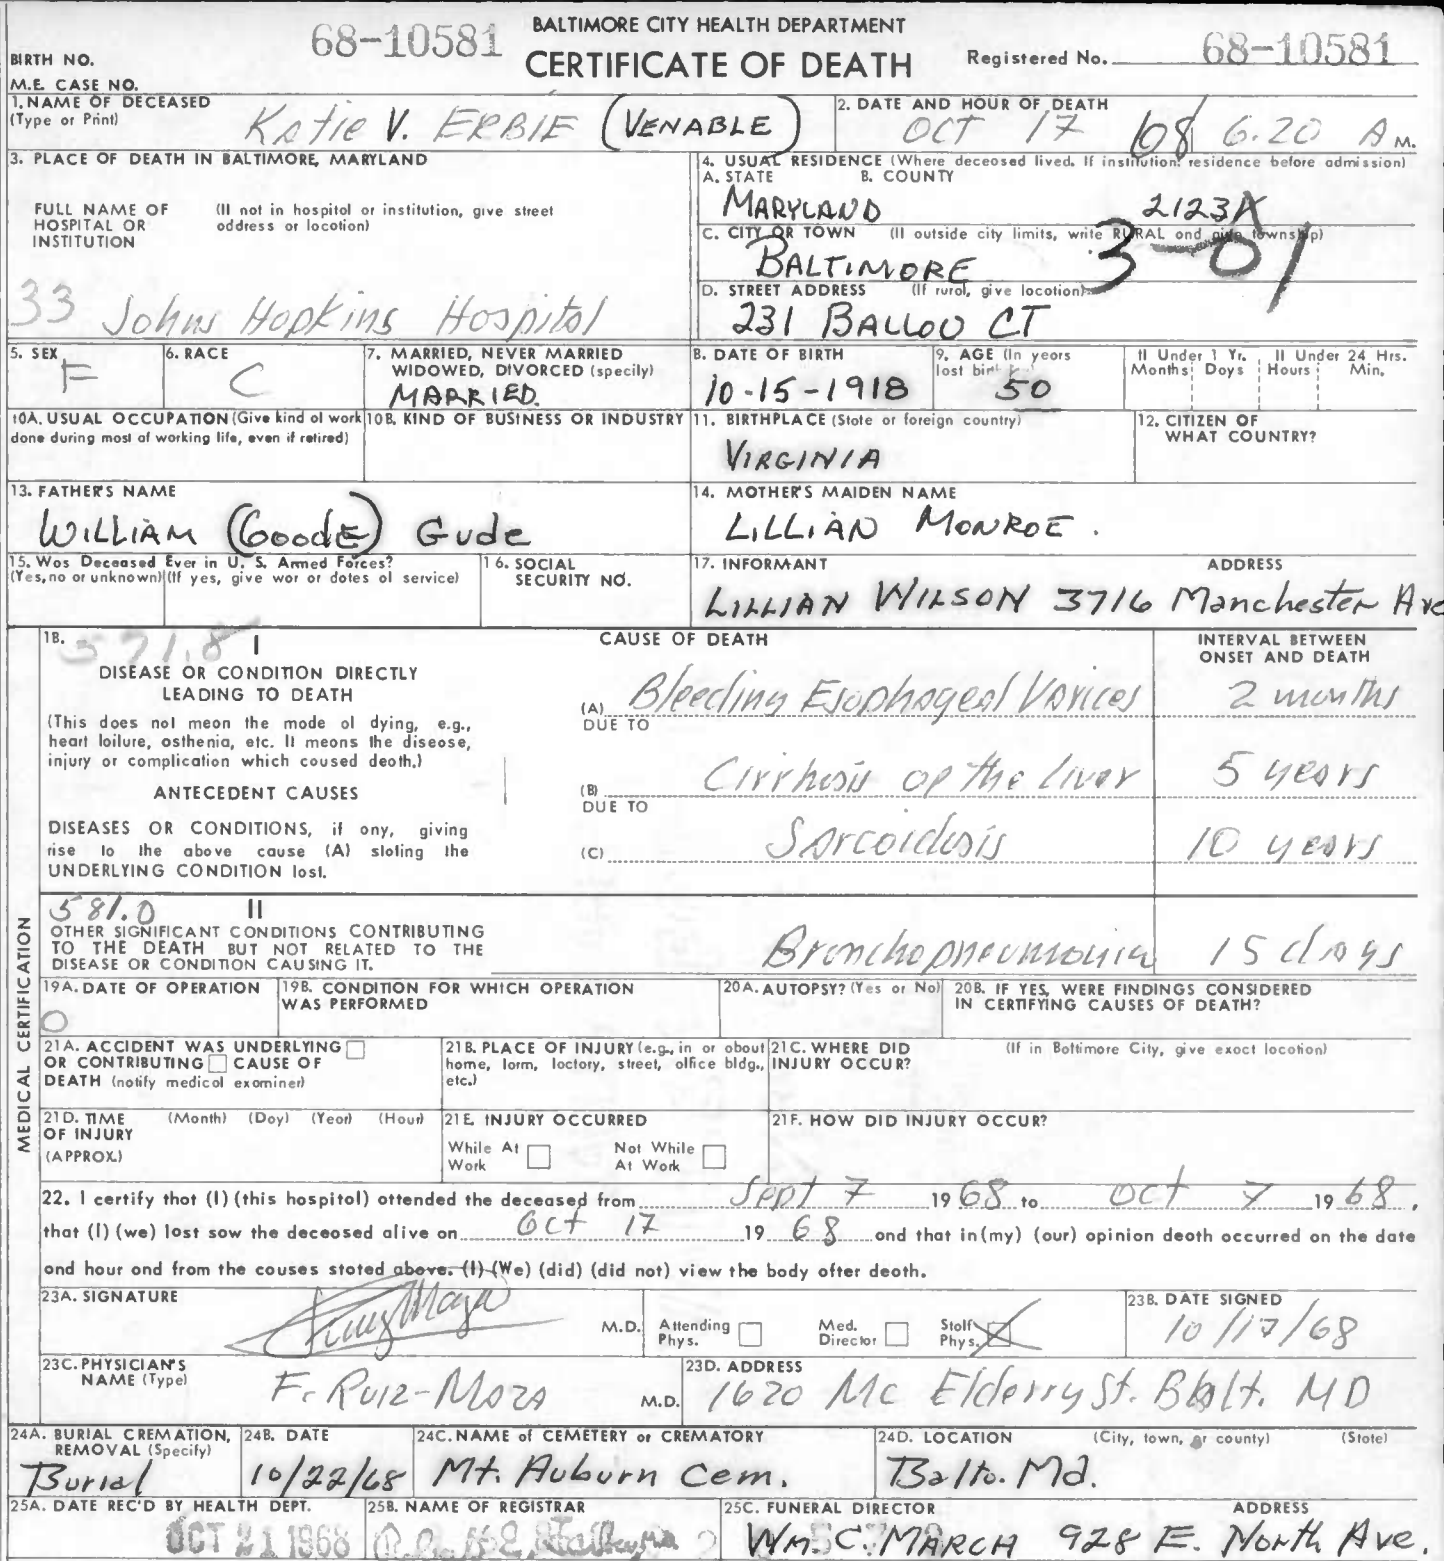 BALTIMORE CITY HEALTH DEPARTMENT
68-10581 CERTIFICATE OF DEATH Registered No. 68-10581
BIRTH NO.
M.E. CASE NO.
1. NAME OF DECEASED (Type or Print) Katie V. ERBIE (VENABLE)
2. DATE AND HOUR OF DEATH OCT 17 68 6.20 A M.
3. PLACE OF DEATH IN BALTIMORE, MARYLAND
FULL NAME OF HOSPITAL OR INSTITUTION (If not in hospital or institution, give street address or location)
33 Johns Hopkins Hospital
4. USUAL RESIDENCE (Where deceased lived. If institution: residence before admission)
A. STATE B. COUNTY
MARYLAND 2123A
C. CITY OR TOWN (If outside city limits, write RURAL and give township)
BALTIMORE 3-01
D. STREET ADDRESS (If rural, give location)
231 BALLOU CT
5. SEX F
6. RACE C
7. MARRIED, NEVER MARRIED WIDOWED, DIVORCED (specify) MARRIED.
8. DATE OF BIRTH 10-15-1918
9. AGE (In years last birthday) 50
If Under 1 Yr. Months Days
If Under 24 Hrs. Hours Min.
10A. USUAL OCCUPATION (Give kind of work done during most of working life, even if retired)
10B. KIND OF BUSINESS OR INDUSTRY
11. BIRTHPLACE (State or foreign country) VIRGINIA
12. CITIZEN OF WHAT COUNTRY?
13. FATHER'S NAME WILLIAM (GoodE) Gude
14. MOTHER'S MAIDEN NAME LILLIAN MONROE.
15. Was Deceased Ever in U. S. Armed Forces? (Yes, no or unknown) (If yes, give war or dates of service)
16. SOCIAL SECURITY NO.
17. INFORMANT ADDRESS
LILLIAN WILSON 3716 Manchester Ave
MEDICAL CERTIFICATION
18. 571.8 I
CAUSE OF DEATH
INTERVAL BETWEEN ONSET AND DEATH
DISEASE OR CONDITION DIRECTLY LEADING TO DEATH
(This does not mean the mode of dying, e.g., heart failure, asthenia, etc. It means the disease, injury or complication which caused death.)
(A) Bleeding Esophageal Varices 2 months
DUE TO
ANTECEDENT CAUSES
(B) Cirrhosis of the liver 5 years
DUE TO
DISEASES OR CONDITIONS, if any, giving rise to the above cause (A) stating the UNDERLYING CONDITION last.
(C) Sarcoidosis 10 years
581.0 II
OTHER SIGNIFICANT CONDITIONS CONTRIBUTING TO THE DEATH BUT NOT RELATED TO THE DISEASE OR CONDITION CAUSING IT.
Bronchopneumonia 15 days
19A. DATE OF OPERATION 0
19B. CONDITION FOR WHICH OPERATION WAS PERFORMED
20A. AUTOPSY? (Yes or No)
20B. IF YES, WERE FINDINGS CONSIDERED IN CERTIFYING CAUSES OF DEATH?
21A. ACCIDENT WAS UNDERLYING OR CONTRIBUTING CAUSE OF DEATH (notify medical examiner)
21B. PLACE OF INJURY (e.g., in or about home, farm, factory, street, office bldg., etc.)
21C. WHERE DID INJURY OCCUR? (If in Baltimore City, give exact location)
21D. TIME OF INJURY (APPROX.) (Month) (Day) (Year) (Hour)
21E. INJURY OCCURRED
While At Work Not While At Work
21F. HOW DID INJURY OCCUR?
22. I certify that (I) (this hospital) attended the deceased from Sept 7 1968 to Oct 7 1968,
that (I) (we) last saw the deceased alive on Oct 17 1968 and that in (my) (our) opinion death occurred on the date
and hour and from the causes stated above. (I) (We) (did) (did not) view the body after death.
23A. SIGNATURE M.D.
Attending Phys. Med. Director Staff Phys.
23B. DATE SIGNED 10/17/68
23C. PHYSICIAN'S NAME (Type) F. Ruiz-Moza M.D.
23D. ADDRESS 1620 Mc Elderry St. Balt. MD
24A. BURIAL CREMATION, REMOVAL (Specify) Burial
24B. DATE 10/22/68
24C. NAME of CEMETERY or CREMATORY Mt. Auburn Cem.
24D. LOCATION (City, town, or county) (State) Balto. Md.
25A. DATE REC'D BY HEALTH DEPT. OCT 21 1968
25B. NAME OF REGISTRAR
25C. FUNERAL DIRECTOR ADDRESS
Wm. C. MARCH 928 E. North Ave.